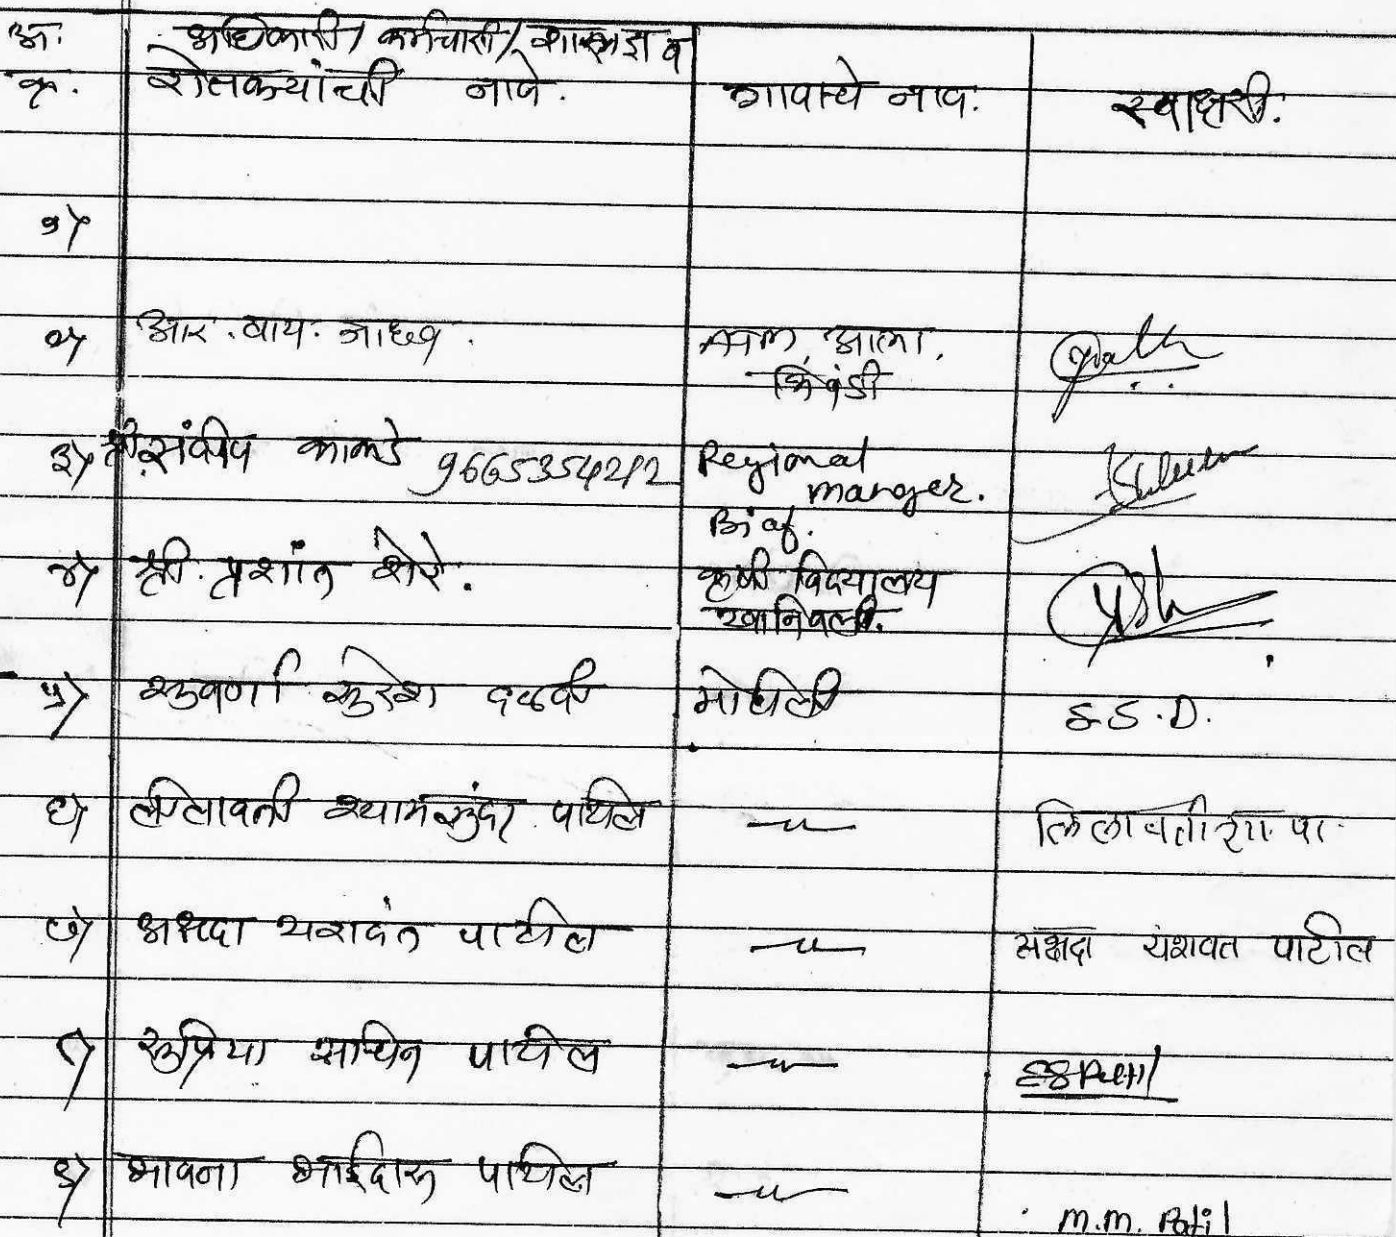 अ. अधिकारी/ कर्मचारी/ शास्त्रज्ञ व
क्र. शेतकऱ्यांची नावे. गावाचे नाव. स्वाक्षरी.
१)
२) आर. वाय. जाधव.
भिवंडी
३) श्री. संदीप काकडे 9665354212 Regional
manger.
Biaf.
४) श्री. प्रशांत शेरे. कृषी विद्यालय
खानिवली.
५) सुवर्णा सुरेश दळवी मोहिली S.S.D.
६) लीलावती श्यामसुंदर पाटील —॥— लिलावती शा. पा.
७) अक्षदा यशवंत पाटील —॥— अक्षदा यशवंत पाटील
८) सुप्रिया सचिन पाटील —॥— SSPatil
९) भावना भाईदास पाटील —॥—
M.M. Patil